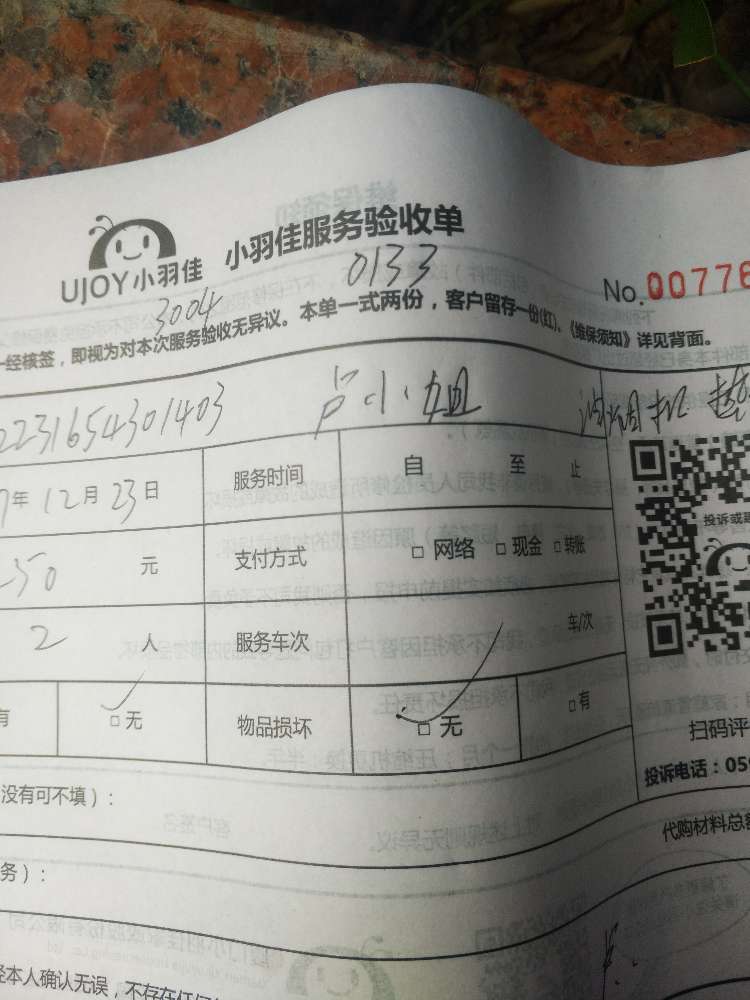 UJOY小羽佳 小羽佳服务验收单
No.00776
3004 0133
一经核签，即视为对本次服务验收无异议。本单一式两份，客户留存一份(红)、《维保须知》详见背面。
2231654301403 卢小姐
年12月23日 服务时间 自 至 止
投诉或
250 元 支付方式 □网络 □现金 □转账
2 人 服务车次 车/次
有 □无 物品损坏 □无 □有
扫码评
投诉电话：059
没有可不填）：
代购材料总
务）：
经本人确认无误，不存在任何